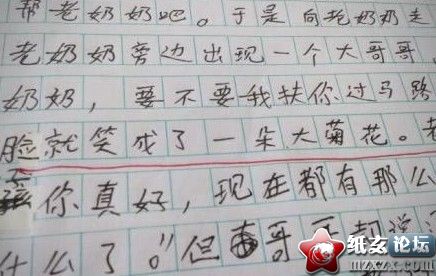 帮老奶奶吧。于是向老奶奶走
老奶奶旁边出现一个大哥哥。
奶奶,要不要我扶你过马路
脸就笑成了一朵大菊花。老
孩你真好,现在都有那么
什么了。"但哥哥却说
纸玄论坛
mzxzx.com